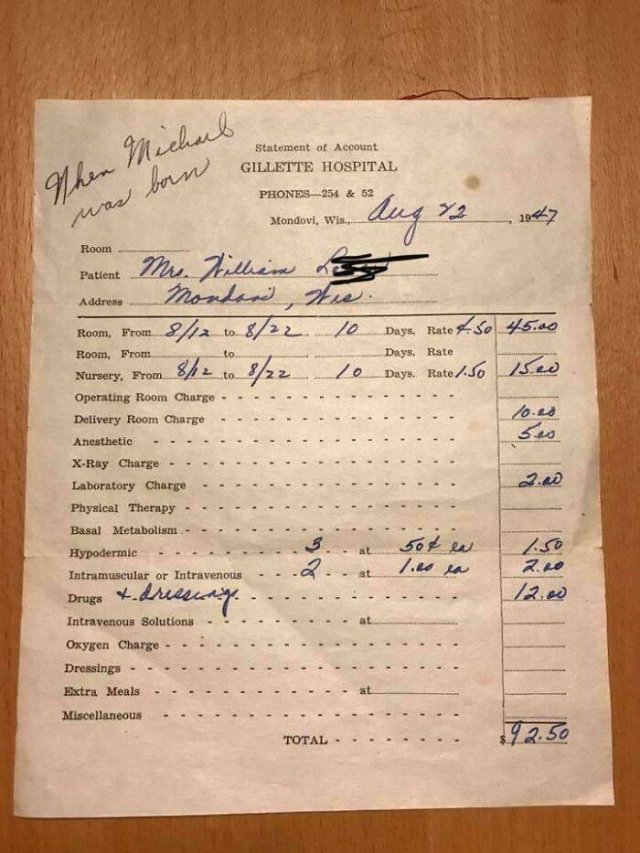 When Michael
was born
Statement of Account
GILLETTE HOSPITAL
PHONES—254 & 52
Mondovi, Wis., Aug 22, 1947
Room
Patient Mrs. William
Address Mondovi, Wis.
Room, From 8/12 to 8/22 10 Days. Rate 4.50 45.00
Room, From to Days. Rate
Nursery, From 8/12 to 8/22 10 Days. Rate 1.50 15.00
Operating Room Charge
Delivery Room Charge 10.00
Anesthetic 5.00
X-Ray Charge
Laboratory Charge 2.00
Physical Therapy
Basal Metabolism
Hypodermic 3 at 50¢ ea 1.50
Intramuscular or Intravenous 2 at 1.00 ea 2.00
Drugs & dressings 12.00
Intravenous Solutions at
Oxygen Charge
Dressings
Extra Meals at
Miscellaneous
TOTAL $92.50